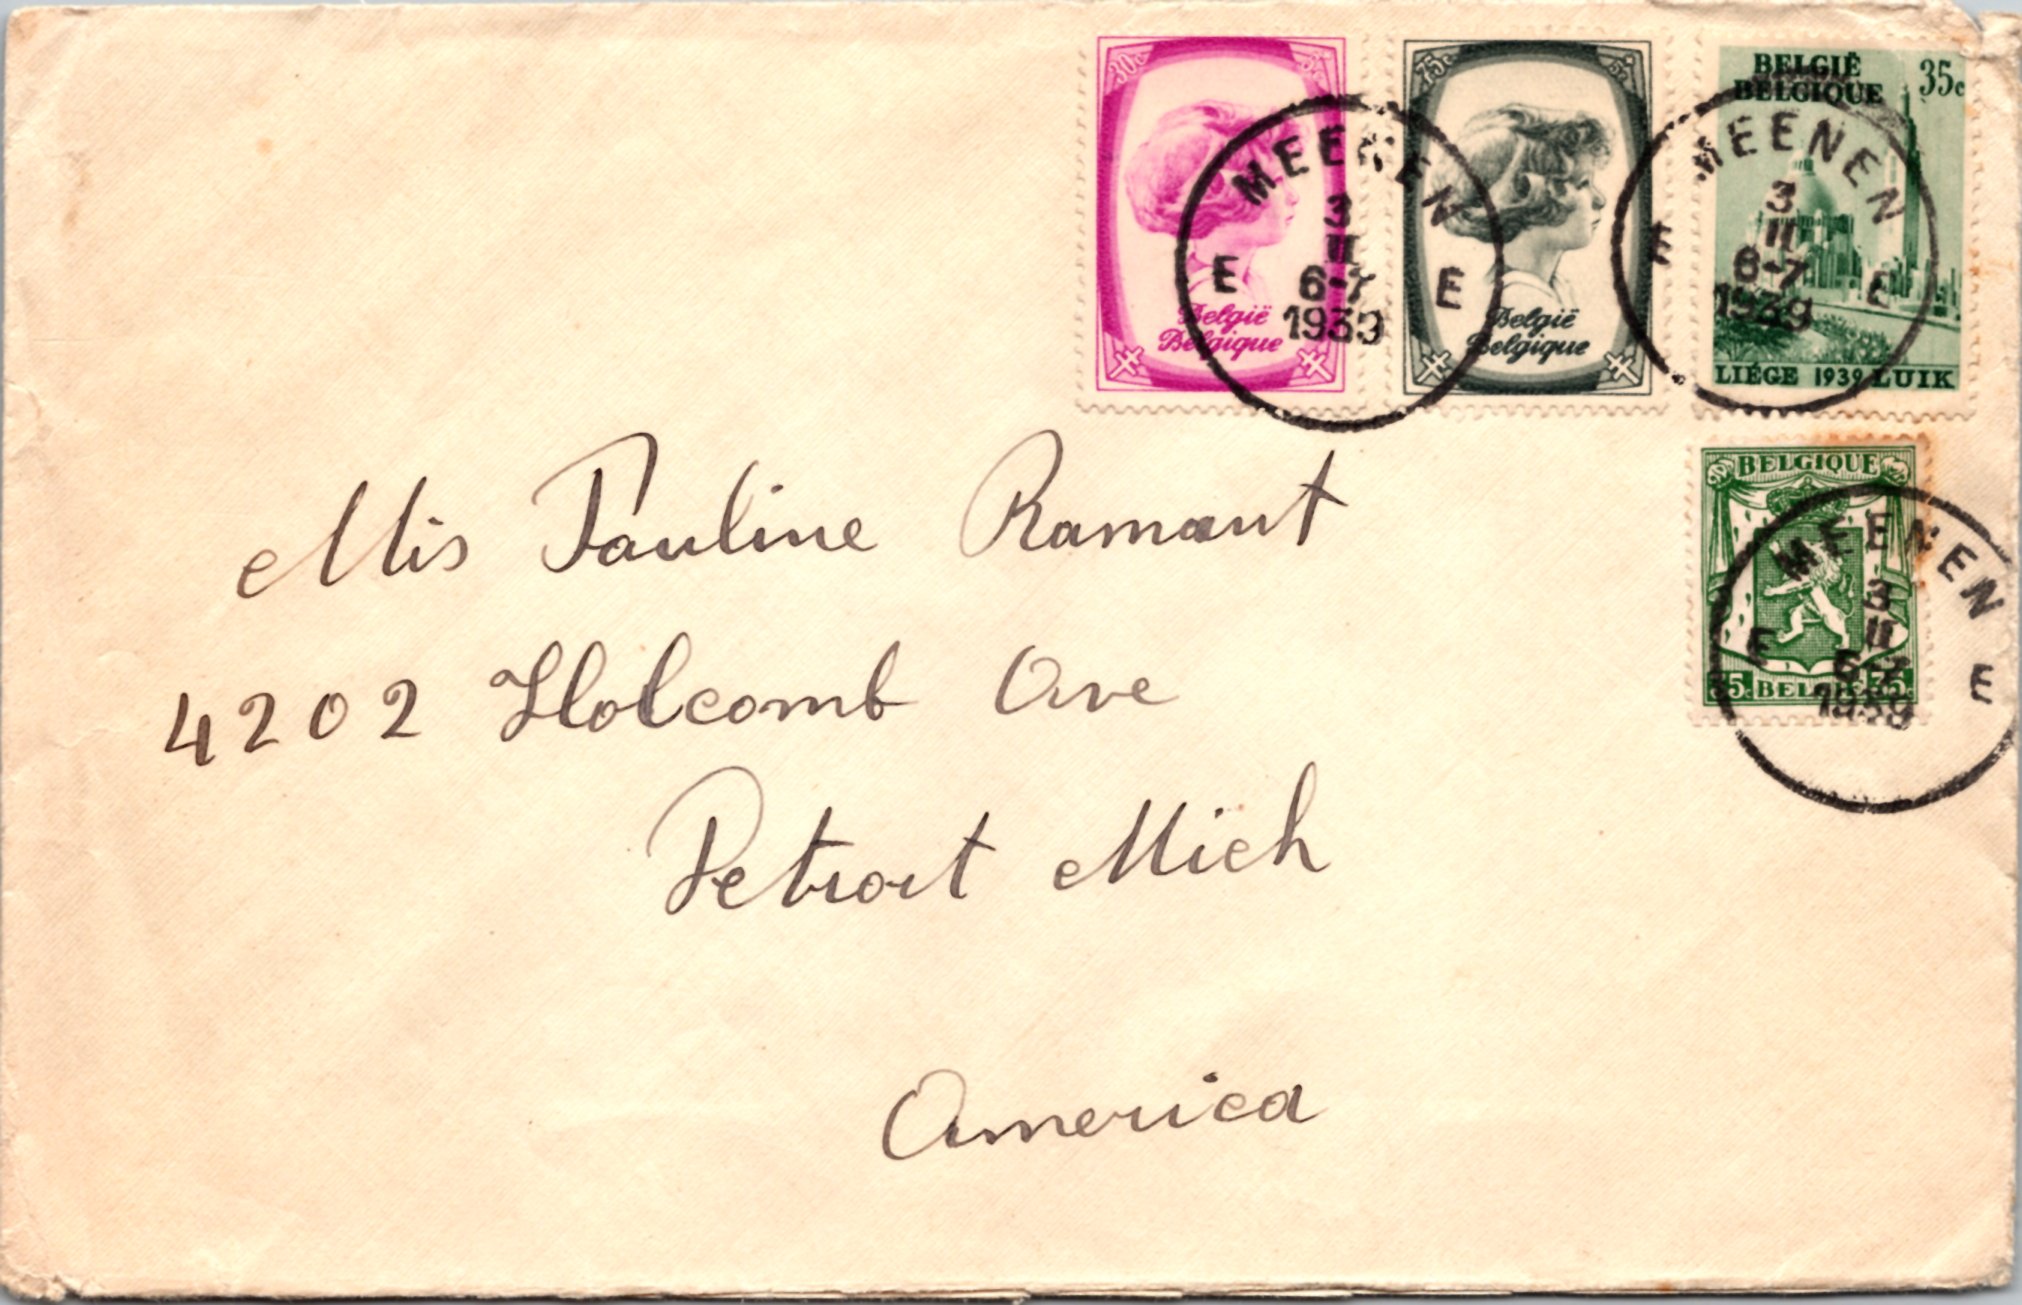 30c 5c
België
Belgique
75c 5c
België
Belgique
BELGIË
BELGIQUE
35c
LIÉGE 1939 LUIK
MEENEN
3
II
6-7
1939
E E
MEENEN
3
II
6-7
1939
E E
BELGIQUE
35c BELGIË 35c
MEENEN
3
II
6-7
1939
E E
Mis Pauline Ramant
4202 Holcomb Ave
Detroit Mich
America